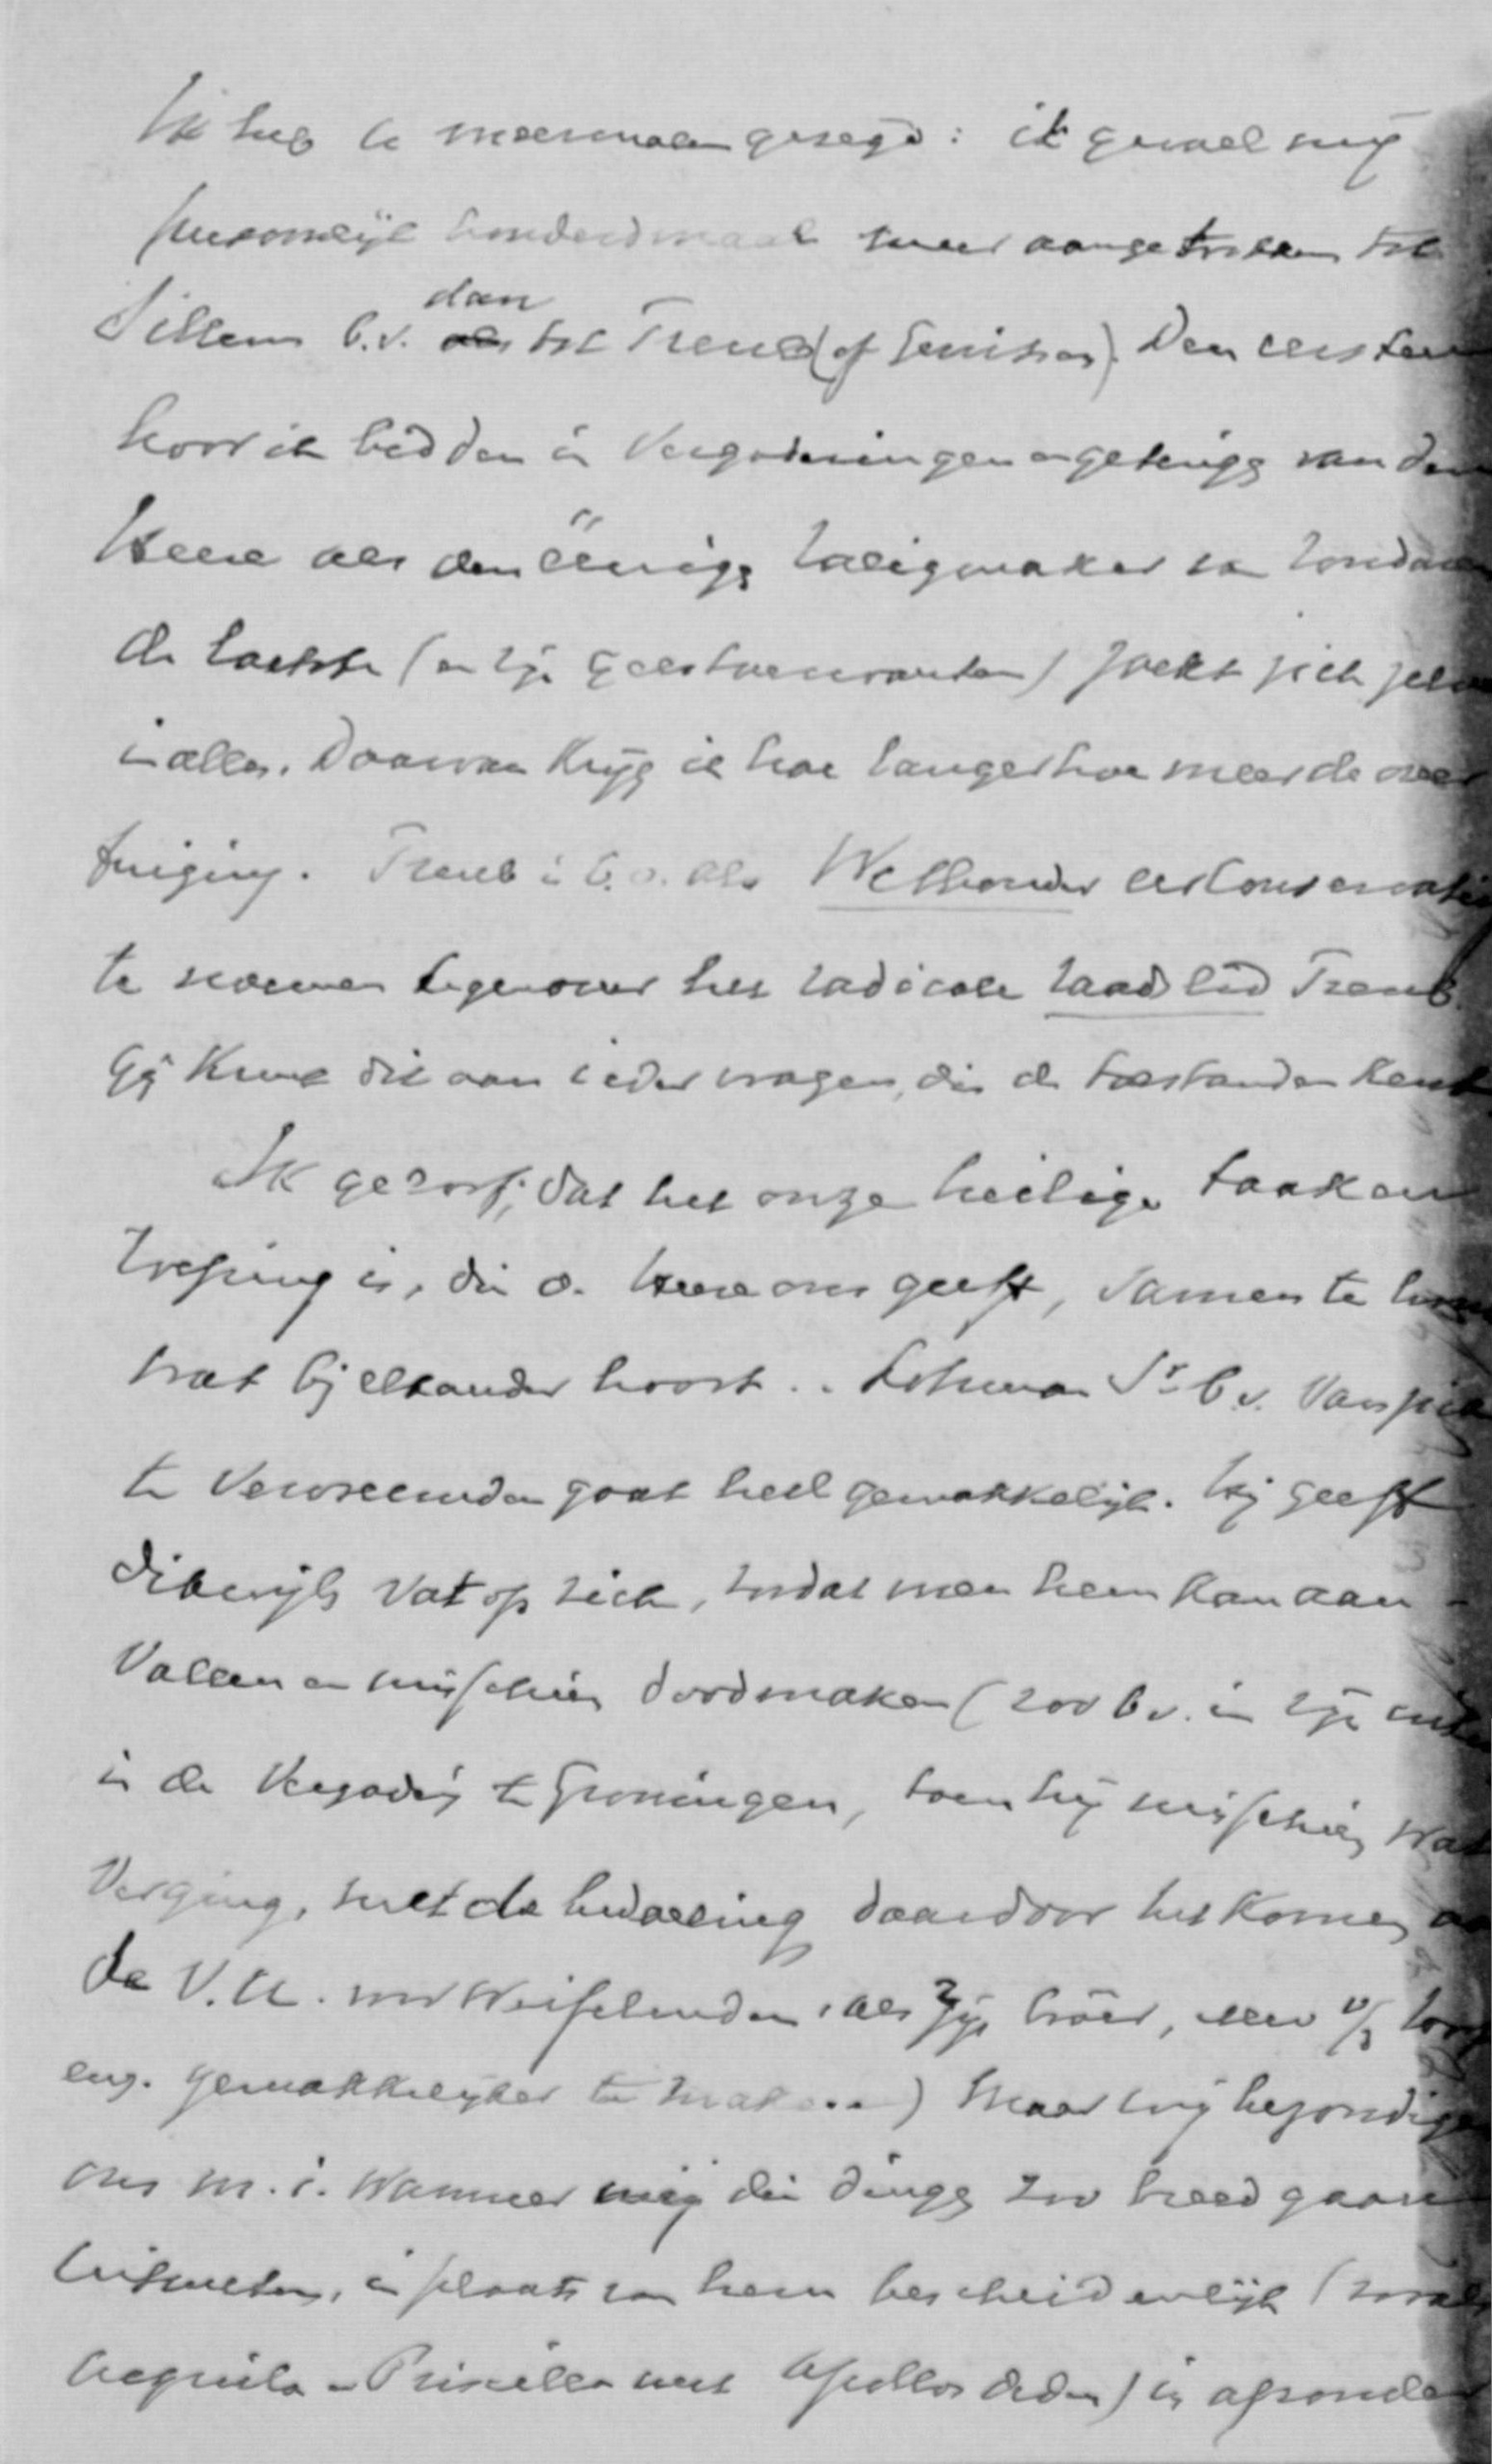 Ik heb U meermalen gezegd: ik gevoel mij
persoonlijk honderdmaal meer aangetrokken tot
Sillem b.v. dan tot Treub (of Gerritsen). Den eersten
hoor ik bidden in Vergaderingen en getuigg van den
Heere als den Eénigg Zaligmaker van zondaren
de laatste (en zijn geestverwanten) zoekt zich zelven
in alles. Daarvan krijg ik hoe langer hoe meer de over
tuiging. Treub is b.v. als Wethouder aartsconservatief
te noemen tegenover het radicale raadslid Treub.
Gij kunt dit aan ieder vragen, die de toestanden kent
Ik geloof, dat het onze heilige taak en
roeping is, die d. Heere ons geeft, samen te
wat bij elkander hoort.. Lohman Sr b.v. van zich
te vervreemden gaat heel gemakkelijk. Hij geeft
dikwijls vat op zich, zodat men hem kan aan-
vallen en misschien doodmaken (zoo b.v. in zijn
in de Vergadg te Groningen, toen hij misschien wat
verging, met de bedoeling daardoor het komen
de V.U. voor weifelenden, als zijn broer,
enz. gemakkelijker te maken..) Maar wij bezondigen
ons m.i. wanneer wij die dingg zoo breed gaan
uitmeten, in plaats van hem bescheidenlijk (zooals
Aequila en Priscilla met Apollos deden) in afzonder